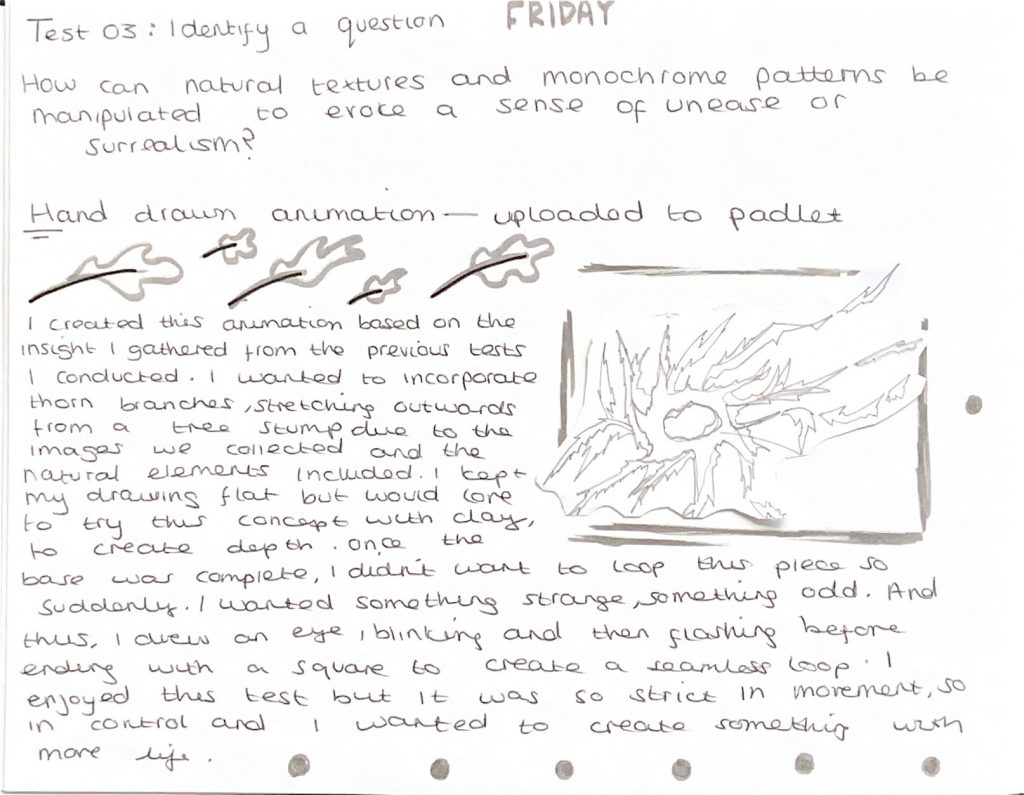 Test 03: Identify a question FRIDAY
How can natural textures and monochrome patterns be
manipulated to evoke a sense of unease or
surrealism?
Hand drawn animation — uploaded to padlet
I created this animation based on the
insight I gathered from the previous tests
I conducted. I wanted to incorporate
thorn branches, stretching outwards
from a tree stump due to the
images we collected and the
natural elements included. I kept
my drawing flat but would love
to try this concept with clay,
to create depth. Once the
base was complete, I didn't want to loop this piece so
suddenly. I wanted something strange, something odd. And
thus, I drew an eye, blinking and then flashing before
ending with a square to create a seamless loop. I
enjoyed this test but it was so strict in movement, so
in control and I wanted to create something with
more life.